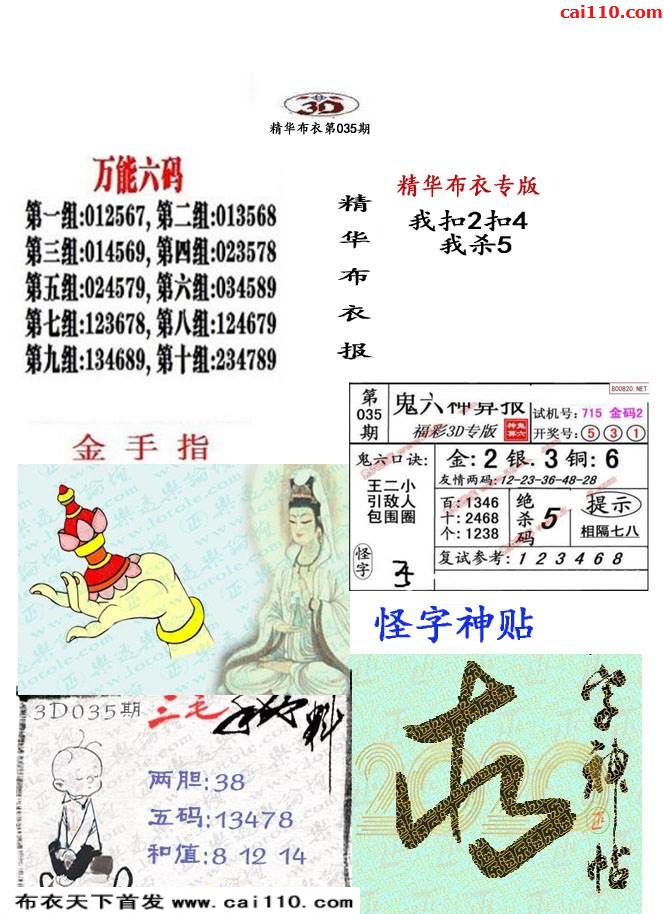 cai110.com
3D
精华布衣第035期
万能六码
第一组:012567, 第二组:013568
第三组:014569, 第四组:023578
第五组:024579, 第六组:034589
第七组:123678, 第八组:124679
第九组:134689, 第十组:234789
精华布衣报
精华布衣专版
我扣2扣4
我杀5
800820.NET
第035期
鬼六神算报
福彩3D专版
试机号: 715 金码2
开奖号: 5 3 1
鬼六口诀:
王二小
引敌人
包围圈
金: 2 银. 3 铜: 6
友情两码: 12-23-36-48-28
百: 1346
十: 2468
个: 1238
绝杀码 5
提示
相隔七八
怪字
复试参考: 1 2 3 4 6 8
金手指
怪字神贴
3D035期
三毛
两胆:38
五码:13478
和值:8 12 14
字神帖
布衣天下首发 www.cai110.com